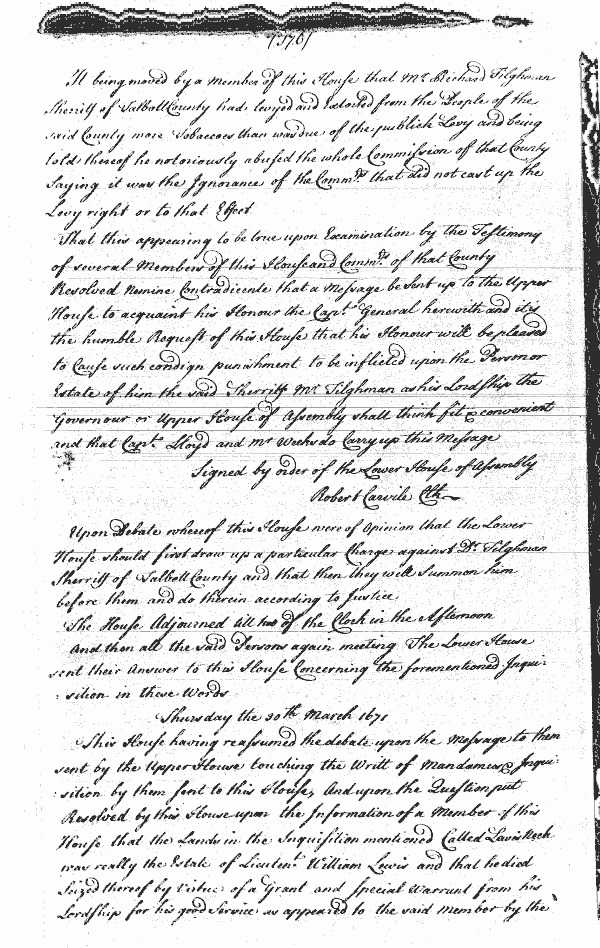 (176)
It being moved by a Member of this House that Mr. Richard Tilghman
Sherriff of Talbott County had levyed and extorted from the People of the
said County more Tobaccoes than was due of the publick Levy and being
told thereof he notoriously abused the whole Commission of that County
Saying it was the Ignorance of the Commrs. that did not cast up the
Levy right or to that Effect
That this appearing to be true upon Examination by the Testimony
of several Members of this House and Commrs. of that County
Resolved Nemine Contradicente that a Message be sent up to the Upper
House to acquaint his Honour the Capt. General herewith and it is
the humble Request of this House that his Honour will be pleased
to Cause such condign punishment to be inflicted upon the Person or
Estate of him the said Sherriff Mr. Tilghman as his Lordship the
Governour or Upper House of Assembly shall think fit & convenient
and that Capt. Lloyd and mr Weeks do Carry up this Message
Signed by order of the Lower House of Assembly
Robert Carvile Clk.
Upon Debate whereof this House were of Opinion that the Lower
House should first draw up a particular Charge against Dr. Tilghman
Sherriff of Talbott County and that then they will Summon him
before them and do therein according to Justice
The House Adjourned till two of the Clock in the Afternoon
And then all the said Persons again meeting The Lower House
sent their Answer to this House Concerning the forementioned Inqui-
-sition in these Words
Thursday the 30th March 1671
This House having reassumed the debate upon the Message to them
sent by the Upper House touching the Writt of Mandamus & Inqui-
-sition by them sent to this House, And upon the Question put
Resolved by this House upon the Information of a Member of this
House that the Lands in the Inquisition mentioned Called
was really the Estate of Lieutent. William Lewis and that he died
Seized thereof by Virtue of a Grant and Special Warrant from his
Lordship for his good Service as appeared to the said Member by the